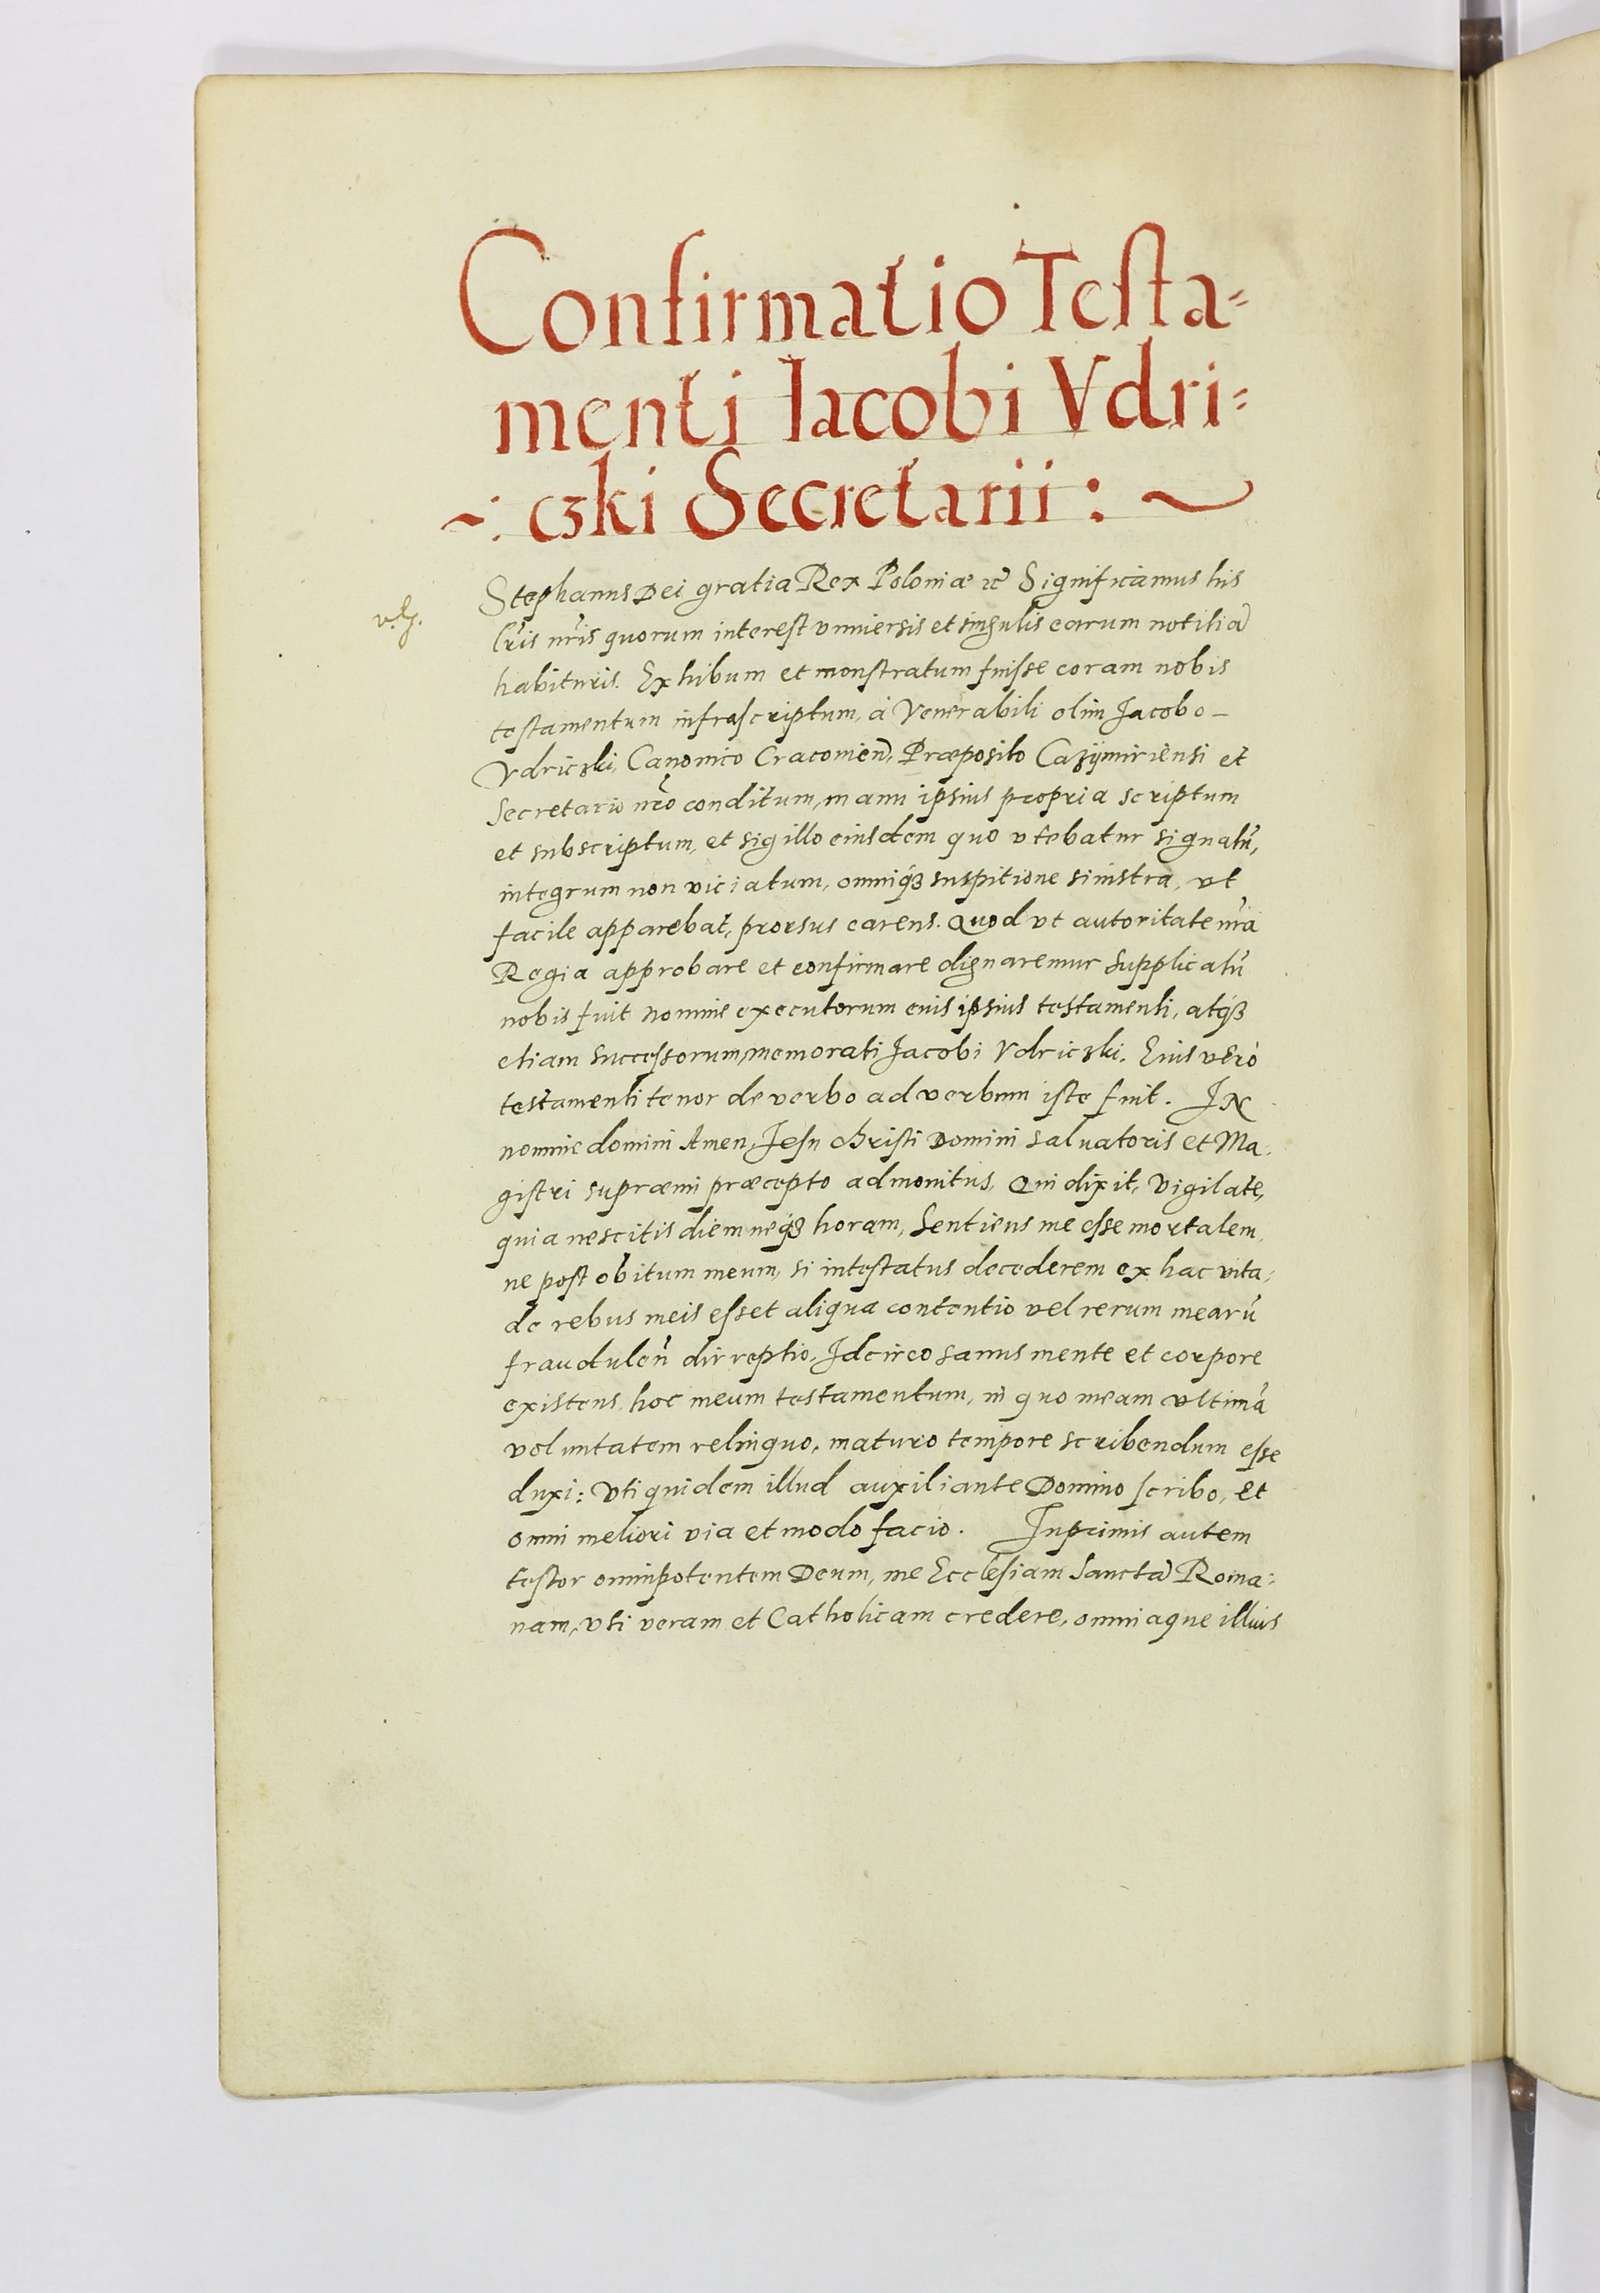 Confirmatio Testa=
menti Iacobi Vdri=
~: czki Secretarii: ~
Stephanus Dei gratia Rex Poloniæ etc̃ Significamus his
lr̃is nr̃is quorum interest vniuersis et singulis earum notitiã
habituris. Exhibum et monstratum fuisse coram nobis
testamentum infrascriptum, à Venerabili olim Jacobo –
Vdriczki, Canonico Cracouien̄, Præposito Cazÿmiriensi et
Secretario nr̃o conditum, manu ipsius propria scriptum
et subscriptum, et sigillo eiusdem quo vtebatur signatũ,
integrum non viciatum, omniq̃ꝫ suspitione sinistra, vt
facile apparebat, prorsus carens. Quod vt autoritate nr̃a
Regia approbare et confirmare dignaremur supplicatũ
nobis fuit nomine executorum euis ipsius testamenti, atq̃ꝫ
etiam successorum, memorati Jacobi Vdriczki. Eius vero
testamenti tenor de verbo ad verbum iste fuit. IN
nomine domini Amen, Jesu christi Domini saluatoris et Ma,
gistri supræmi præcepto admonitus, Qui dixit, Vigilate,
quia nescitis diem neq̃ꝫ horam, Sentiens me esse mortalem,
ne post obitum meum, si intestatus decederem ex hac vita,
de rebus meis esset aliqua contentio vel rerum mearũ
fraudulen̄ dirreptio, Idcirco sanus mente et corpore
existens, hoc meum testamentum, in quo meam vltimã
voluntatem relinquo, maturo tempore scribendum esse
duxi: Vti quidem illud auxiliante Domino scribo, et
omni meliori via et modo facio. Inprimis autem
testor omnipotentem Deum, me Ecclesiam Sanctã Roma=
nam, vti veram et Catholicam credere, omniaque illius